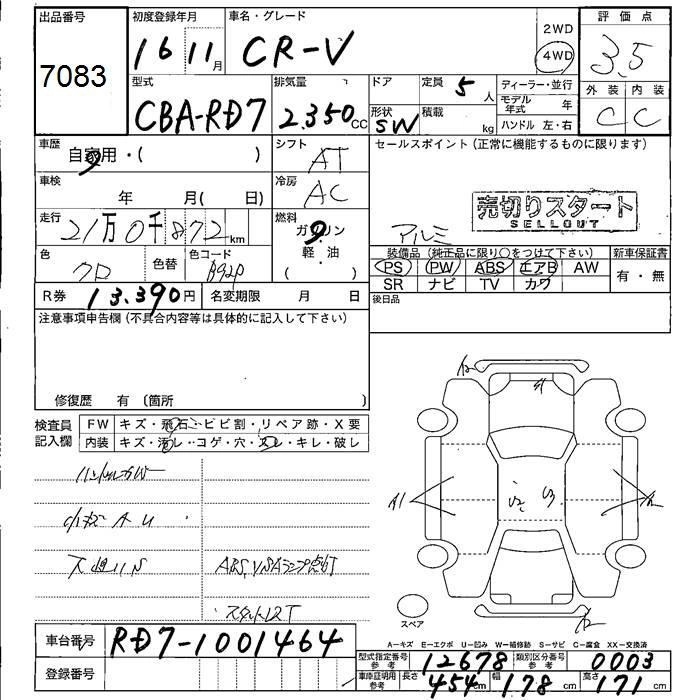 出品番号 初度登録年月 車名・グレード 2WD 評価点
7083 16 11月 CR-V 4WD 3.5
型式 排気量 ドア 定員 5人 ディーラー・並行 外装 内装
CBA-RD7 2.350cc 形状 SW 積載 kg モデル年式 年 C C
ハンドル 左・右
車歴 自家用・( ) シフト AT セールスポイント(正常に機能するものに限ります)
車検 年 月( 日) 冷房 AC
売切りスタート
SELLOUT
走行 21万0千872km 燃料 ガソリン・軽油( ) アルミ
装備品(純正品に限り○をつけて下さい) 新車保証書
色 クロ 色替 色コード B92P PS PW ABS エアB AW 有・無
SR ナビ TV カワ
R券 13.390円 名変期限 月 日 後日品
注意事項申告欄(不具合内容等は具体的に記入して下さい)
修復歴 有 〔箇所 〕
検査員記入欄 FW キズ・飛石・ヒビ割・リペア跡・X要
内装 キズ・汚レ・コゲ・穴・スレ・キレ・破レ
A1
ABS, VSAランプ点灯
スペア
A－キズ E－エクボ U－凹み W－補修跡 S－サビ C－腐食 XX－交換済
車台番号 RD7-1001464
型式指定番号 参考 12678 類別区分番号 参考 0003
登録番号 車庫証明用 参考 長さ 454cm 幅 178cm 高さ 171cm